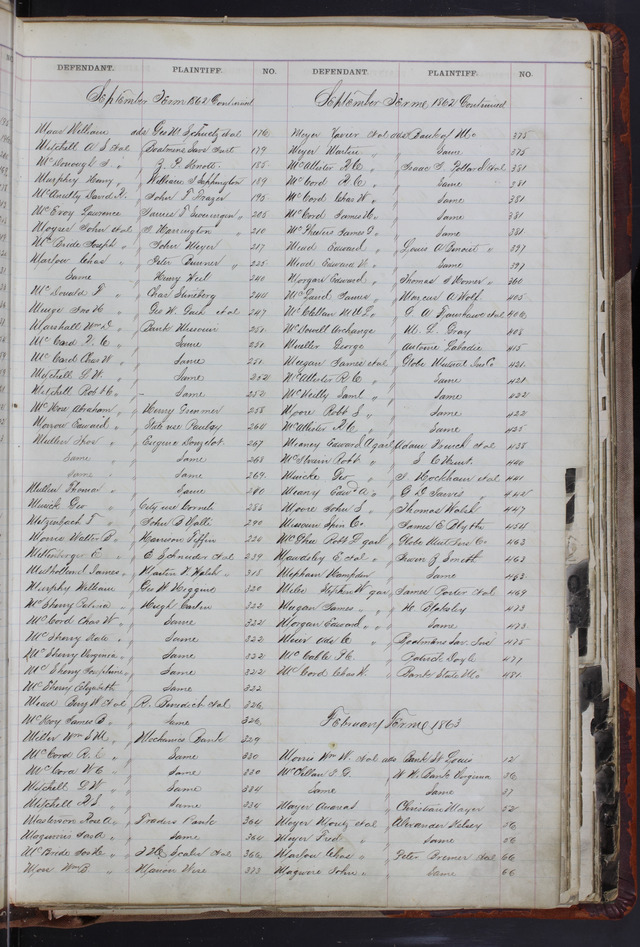 DEFENDANT. PLAINTIFF. NO.
September Term 1862 Continued
Maas William ads Geo M Schuetz et al 176
Mitchell A S et al " Boatmens Save Inst 179
McDonough " 185
Murphy Henry " William S Seppington 189
McAnulty David R. " John T Frazer 195
McEvoy Lawrence " James T Sweringen " 205
Moyser John et al " Harrington " 210
McBride Joseph " " John Meyer 217
Marlow Chas " " Peter Bremer " 225
Same " Henry Weil 240
McDonald F " " Chas Steneberg 244
Minge Fred H " Geo W et al 247
Marshall Wm D " Bank Missouri 251
McCard R. C " Same 251
McCard Chas W " Same 251
Mitchell D W " Same 252
Mitchell Robt C. " Same 252
McKose Abraham " Henry Grommer 258
Morrow Edward " State use 264
Muller " Eugene Donzelot 267
Same " Same 268
Same " Same 269
Mullin Thomas " " Same 280
Munck Geo " City use 286
Mitzenbach F " " John B Valle 290
Morris Walter B " Harrison Tiffin 224
Miltenberger E " E Schneider et al 239
Mulholland James " Martin K Walsh " 318
Murphy William " Geo W Higgins 320
McSherry Patricia " Hugh Carlin 322
McCord Chas W " Same 322
McSherry Kate " Same 322
McSherry Virginia " Same 322
McSherry Josephine " Same 322
McSherry Elizabeth " Same 322
Mead Benj W et al " R. Benedict et al 326
McKoy James B. " Same 326
Miller Wm S " Mechanics Bank 329
McCord R. C " " Same 330
McCord W C " Same 330
Mitchell D W " Same 334
Mitchell R S " Same 334
Masterson Rose A " Traders Bank 364
Maginnis Jas A " Same 364
McBride Jos H " et al 366
More Wm B. " " Marion Wise 373
DEFENDANT. PLAINTIFF. NO.
September Term 1862 Continued
Meyer Xavier et al ads Bank of Mo 375
Meyer Martin " Same 375
McAllister R C " " Isaac T et al 381
McCord R C " " Same 381
McCord Chas W " Same 381
McCord James H " Same 381
McPheeters James F " Same 381
Mead Edward " Louis A Benoist " 397
Mead Edward W " Same 397
Morgan Edward " Thomas S 360
McLaud James " Marcus A Wolf 405
McClellan M " C. A et al 406
McDowell Archange " M. L Gray 408
Mueller George " Antoine Labadie 415
Meegan James et al " Globe Mutual Ins Co 421
McAllister R C " " Same 421
McNeilly Saml " Same 422
Moore Robt S " Same 422
McAllister R. C " Same 425
Meaney Edward A garl Adam French et al 438
McIlvain Robt " S. C Hunt 440
Muncke Geo " Hockham et al 441
Meany Edwd A " C D Jarvis " 442
Moore John S " Thomas Walsh 447
Missouri Spin Co " James E Blythe 454
McGhee Robt D garl Globe Mut Ins Co 463
Mawdsley E et al " Irwin Z Smith 463
Mepham Hampden " Same 463
Miles Stephen W gar James Porter et al 469
Meegan James " " H. Blakeley 473
Morgan Edward " " Same 473
Muir Ada C " Boatmens Sav. Ins 475
McCable P. C " Patrick Doyle 477
McCord Chas W. " Bank State Mo 481
February Term 1863
Morris Wm W. et al ads Bank St Louis 12
McLellan S. D. " W. W. Bank Virginia 36
Same " Same 37
Mayer " Christian Mayer 52
Moyer et al " Alexander Kelsey 56
Moyer Fred " " Same 56
Marlow Chas " " Peter Bremer et al 66
Magwire John " " Same 66